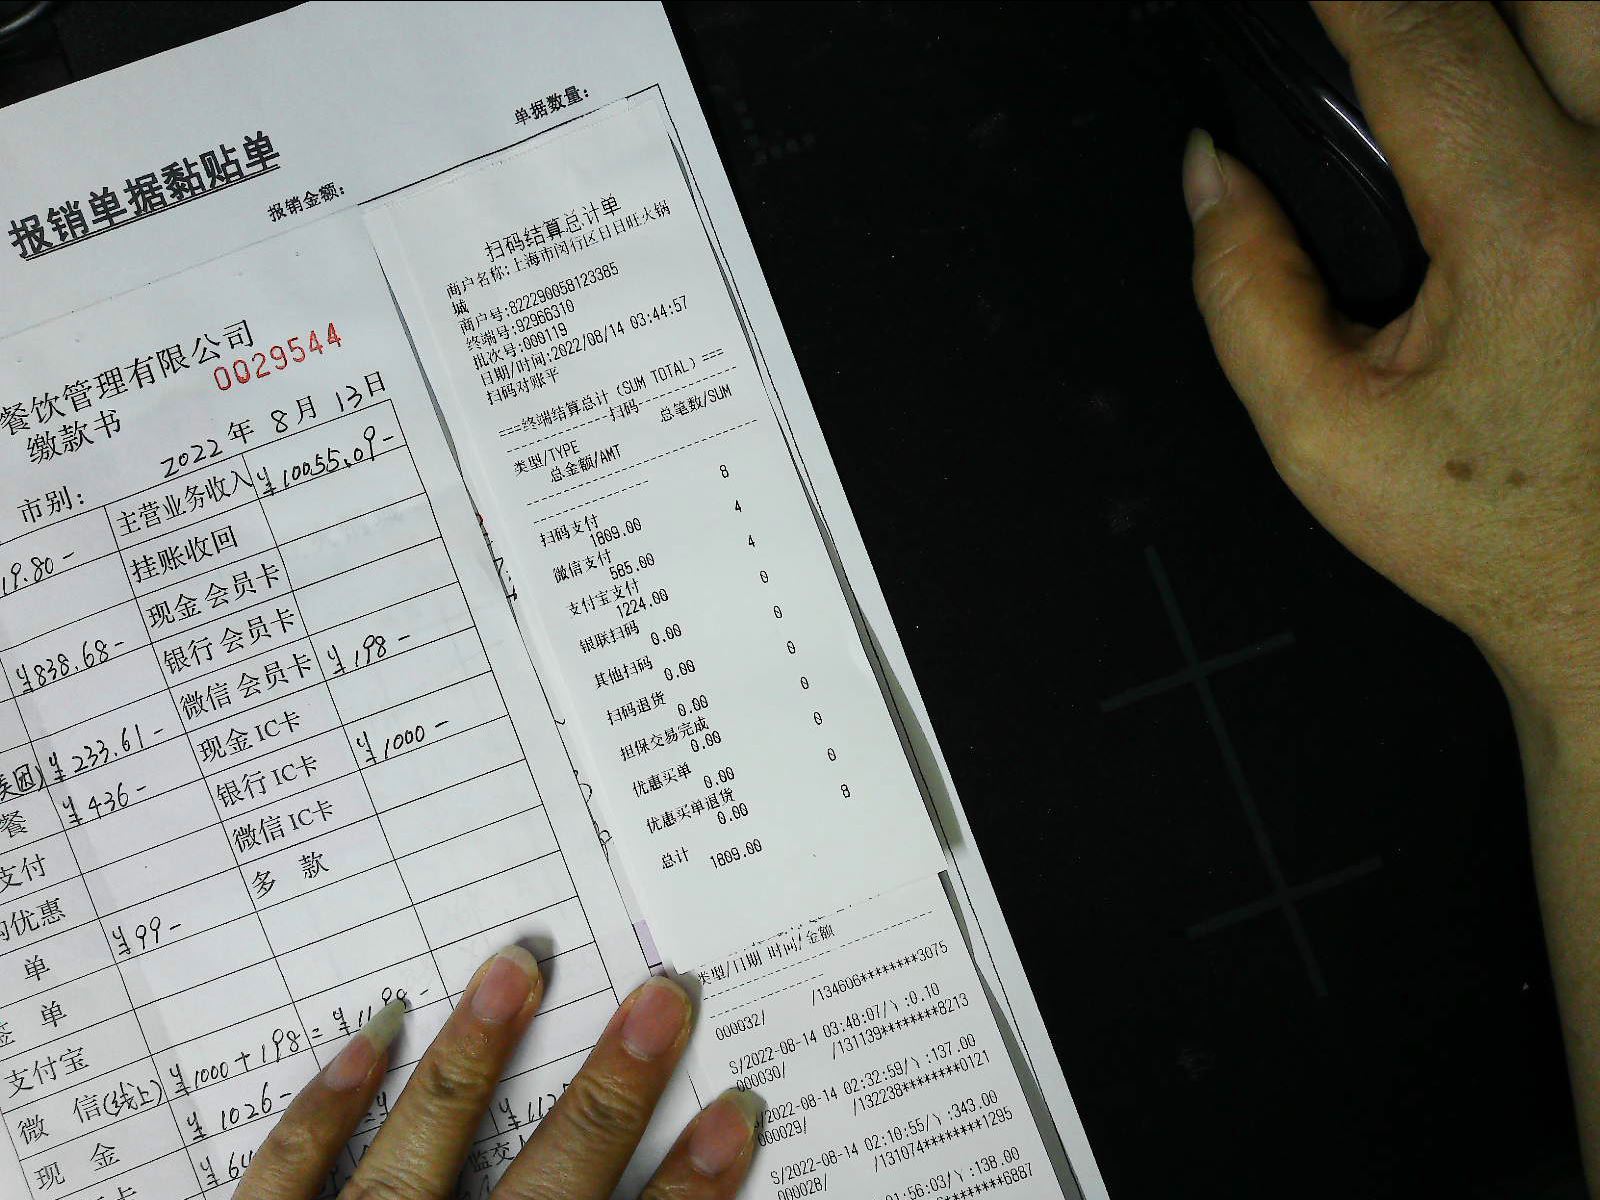 单据数量:
报销单据黏贴单
报销金额:
餐饮管理有限公司
0029544
缴款书
2022 年 8 月 13 日
市别:
主营业务收入 ¥10055.09-
19.80-
挂账收回
现金会员卡
¥838.68-
银行会员卡
微信会员卡 ¥198-
¥233.61-
现金IC卡
¥436-
银行IC卡 ¥1000-
餐
微信IC卡
支付
多 款
优惠
单 ¥99-
单
支付宝
微 信(线上) ¥1000+198=¥1198-
现 金 ¥1026-
扫码结算总计单
商户名称:上海市闵行区日日旺火锅
城
商户号:822290058123385
终端号:92966310
批次号:000119
日期/时间:2022/08/14 03:44:57
扫码对账平
===终端结算总计(SUM TOTAL)===
扫码
类型/TYPE 总笔数/SUM
总金额/AMT
扫码支付 8
1809.00
微信支付 4
585.00
支付宝支付 4
1224.00
银联扫码 0
0.00
其他扫码 0
0.00
扫码退货 0
0.00
担保交易完成 0
0.00
优惠买单 0
0.00
优惠买单退货 0
0.00
总计 8
1809.00
类型/日期 时间/金额
000032/ /134606********3075
S/2022-08-14 03:48:07/\:0.10
000030/ /131139********8213
S/2022-08-14 02:32:59/\:137.00
000029/ /132238********0121
S/2022-08-14 02:10:55/\:343.00
000028/ /131074********1295
01:56:03/\:138.00
6887